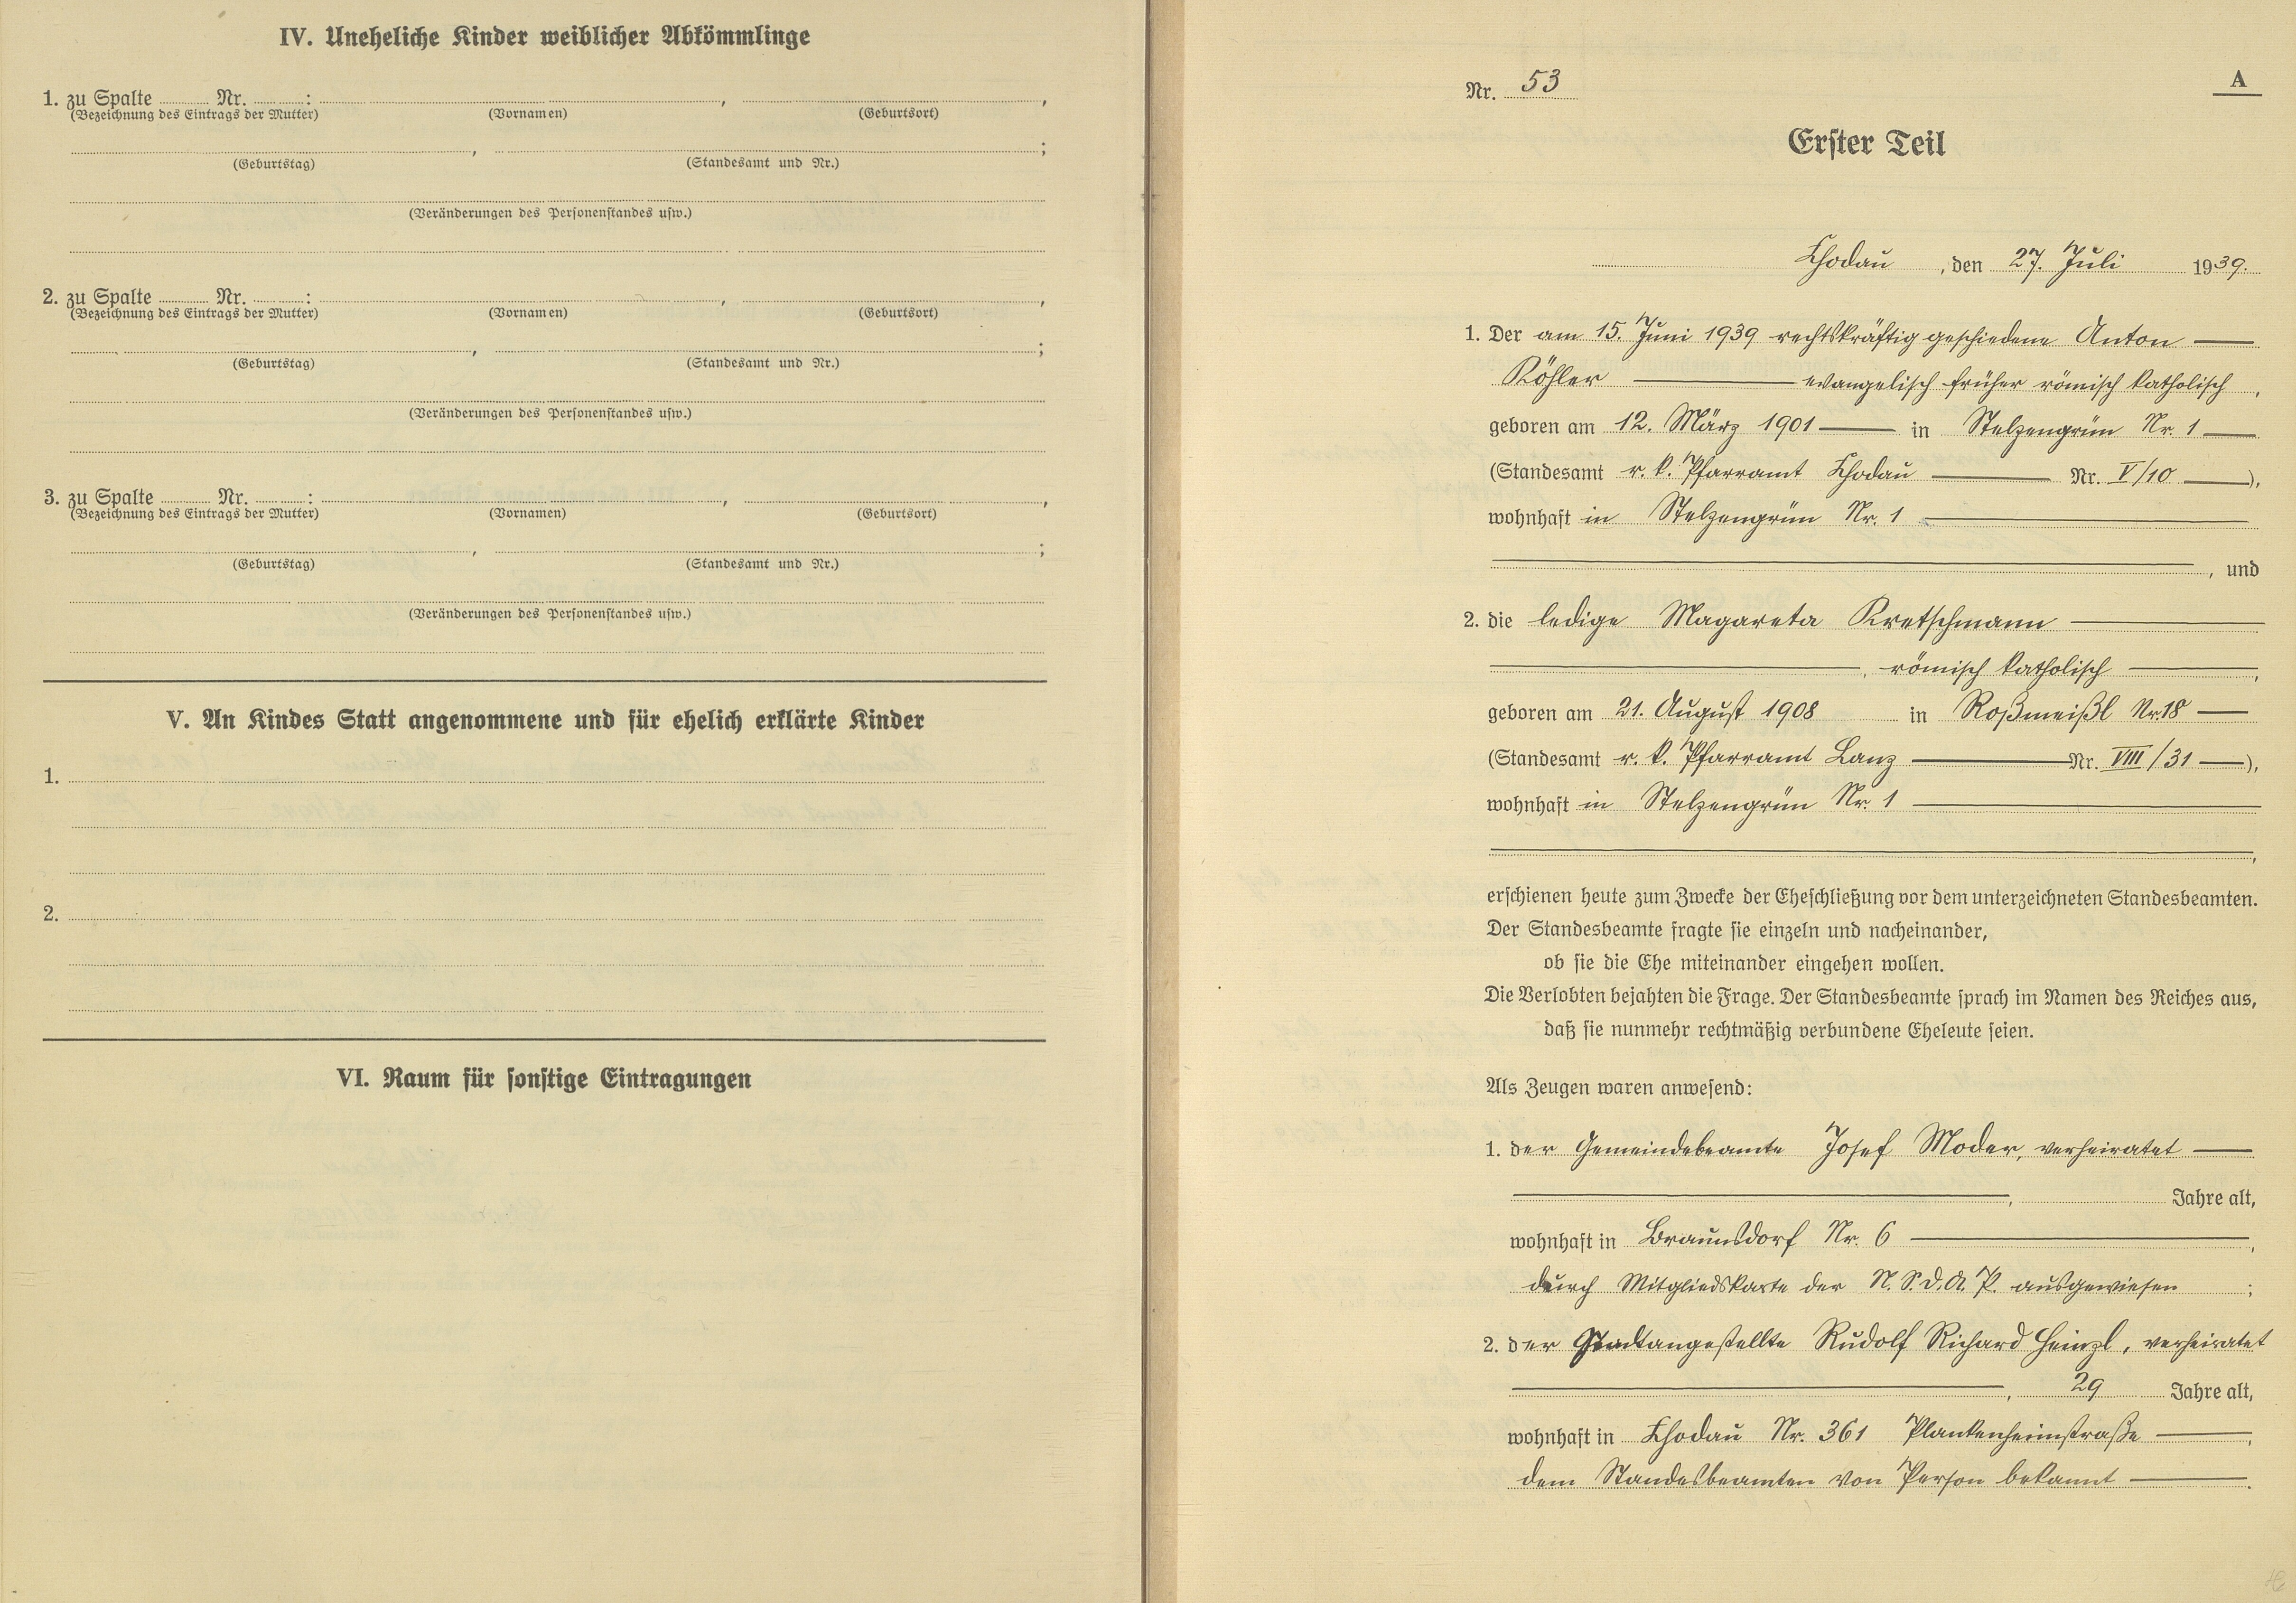 IV. Uneheliche Kinder weiblicher Abkömmlinge
1. zu Spalte ........ Nr. ........:
(Bezeichnung des Eintrags der Mutter) (Vornamen) (Geburtsort)
(Geburtstag) (Standesamt und Nr.)
(Veränderungen des Personenstandes usw.)
2. zu Spalte ........ Nr. ........:
(Bezeichnung des Eintrags der Mutter) (Vornamen) (Geburtsort)
(Geburtstag) (Standesamt und Nr.)
(Veränderungen des Personenstandes usw.)
3. zu Spalte ........ Nr. ........:
(Bezeichnung des Eintrags der Mutter) (Vornamen) (Geburtsort)
(Geburtstag) (Standesamt und Nr.)
(Veränderungen des Personenstandes usw.)
V. An Kindes Statt angenommene und für ehelich erklärte Kinder
1.
2.
VI. Raum für sonstige Eintragungen
Nr. 53
A
Erster Teil
Chodau, den 27. Juli 1939.
1. Der am 15. Juni 1939 rechtskräftig geschiedene Anton
Köhler evangelisch früher römisch katholisch,
geboren am 12. März 1901 in Stelzengrün Nr. 1
(Standesamt r. k. Pfarramt Chodau Nr. V/10),
wohnhaft in Stelzengrün Nr. 1
, und
2. die ledige Magareta Kretschmann
, römisch katholisch,
geboren am 21. August 1908 in Roßmeißl Nr. 18
(Standesamt r. k. Pfarramt Lanz Nr. VIII/31),
wohnhaft in Stelzengrün Nr. 1
,
erschienen heute zum Zwecke der Eheschließung vor dem unterzeichneten Standesbeamten.
Der Standesbeamte fragte sie einzeln und nacheinander,
ob sie die Ehe miteinander eingehen wollen.
Die Verlobten bejahten die Frage. Der Standesbeamte sprach im Namen des Reiches aus,
daß sie nunmehr rechtmäßig verbundene Eheleute seien.
Als Zeugen waren anwesend:
1. der Gemeindebeamte Josef Moder, verheiratet
, Jahre alt,
wohnhaft in Braunsdorf Nr. 6,
durch Mitgliedskarte der N.S.D.A.P. ausgewiesen;
2. der Stadtangestellte Rudolf Richard Heinzl, verheiratet
, 29 Jahre alt,
wohnhaft in Chodau Nr. 361 Plankenheimstraße,
dem Standesbeamten von Person bekannt.